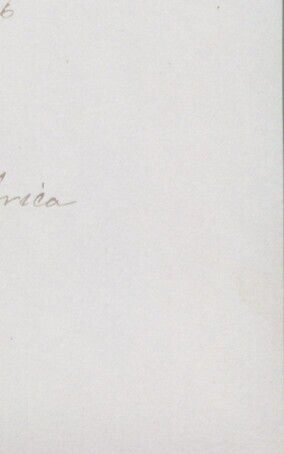 6
rica